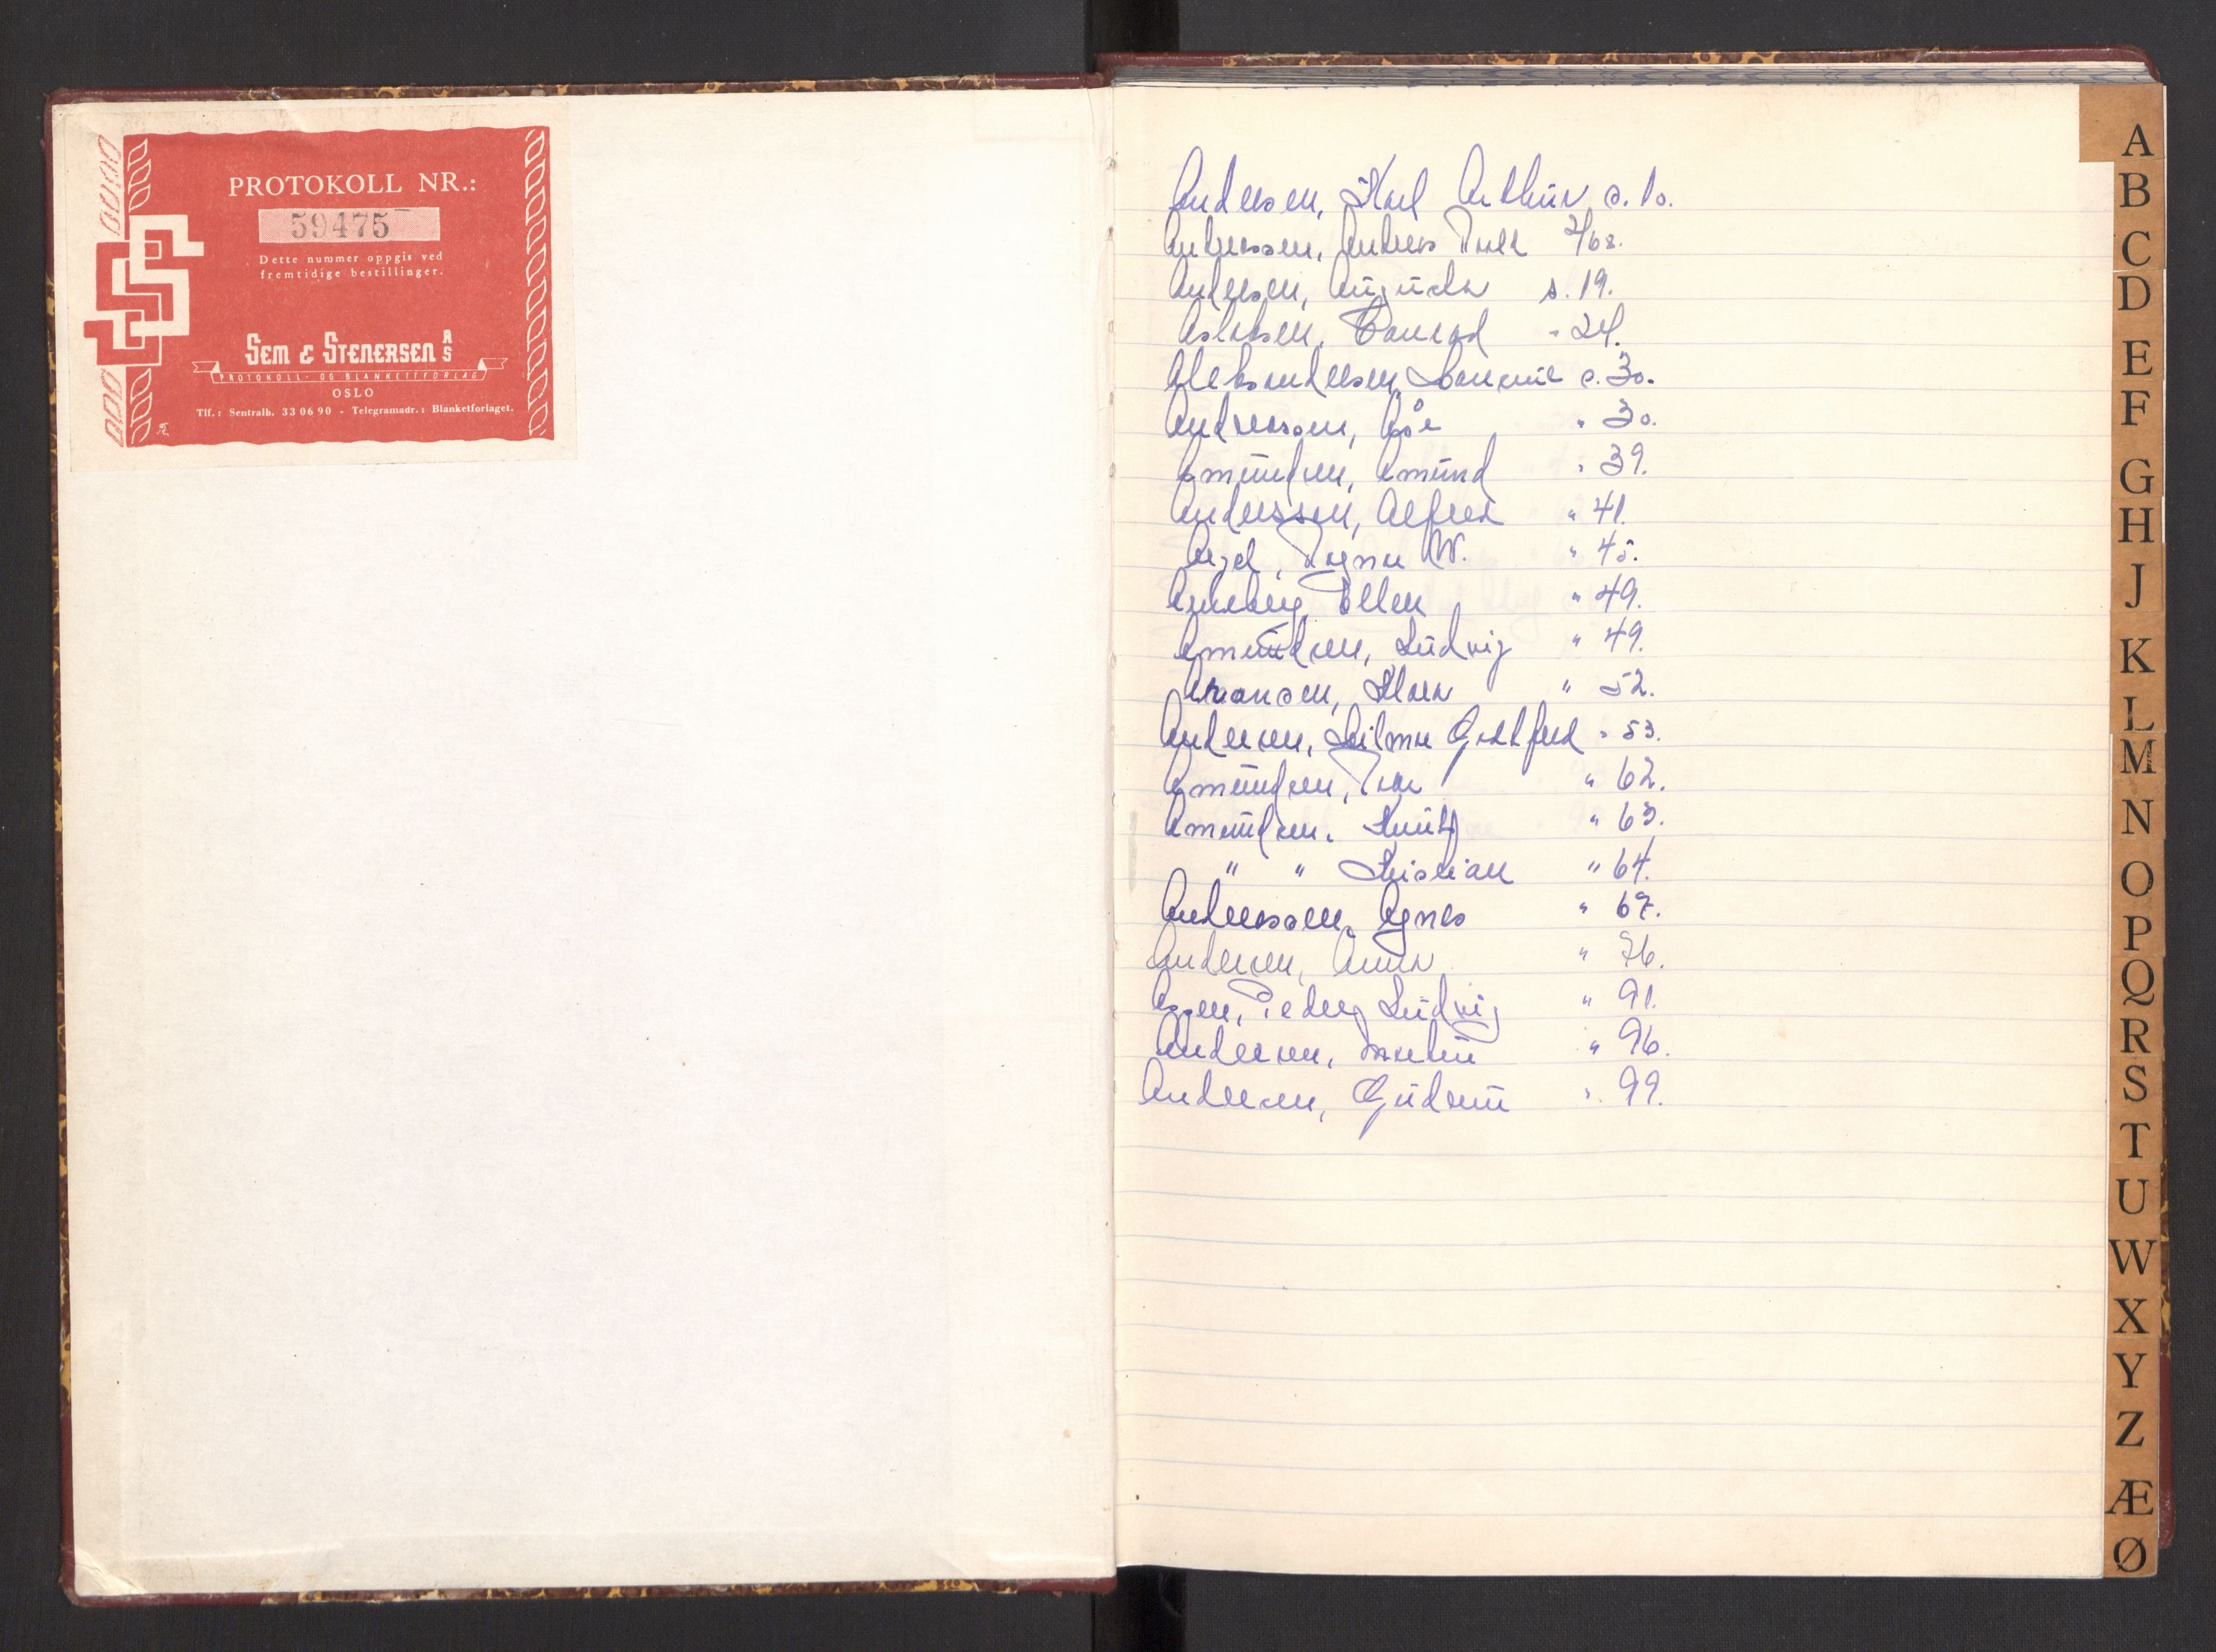 PROTOKOLL NR.:
59475
Dette nummer oppgis ved
fremtidige bestillinger.
SEM & STENERSEN A/S
PROTOKOLL- OG BLANKETTFORLAG
OSLO
Tlf.: Sentralb. 33 06 90 - Telegramadr.: Blanketforlaget.
Andersen, Karl Arthur s. 10.
Andreassen, Anders 2/68.
Andersen, Augusta s. 19.
Aslaksen, Conrad " 24.
Aleksandersen, s. 30.
Andreassen, Åse " 30.
Amundsen, Amund " 39.
Anderssen, Alfred " 41.
Ragnar W. " 45.
Anneberg, Ellen " 49.
Amundsen, Ludvig " 49.
Klara " 52.
Andersen, Hilmar Gottfred " 53.
Amundsen, Ivar " 62.
Amundsen, Knut " 63.
" " Kristian " 64.
Andreassen, Agnes " 67.
Andersen, Anna " 76.
Peder Ludvig " 91.
Andersen, Martin " 96.
Andersen, Gudrun " 99.
A
B
C
D
E
F
G
H
J
K
L
M
N
O
P
Q
R
S
T
U
W
X
Y
Z
Æ
Ø